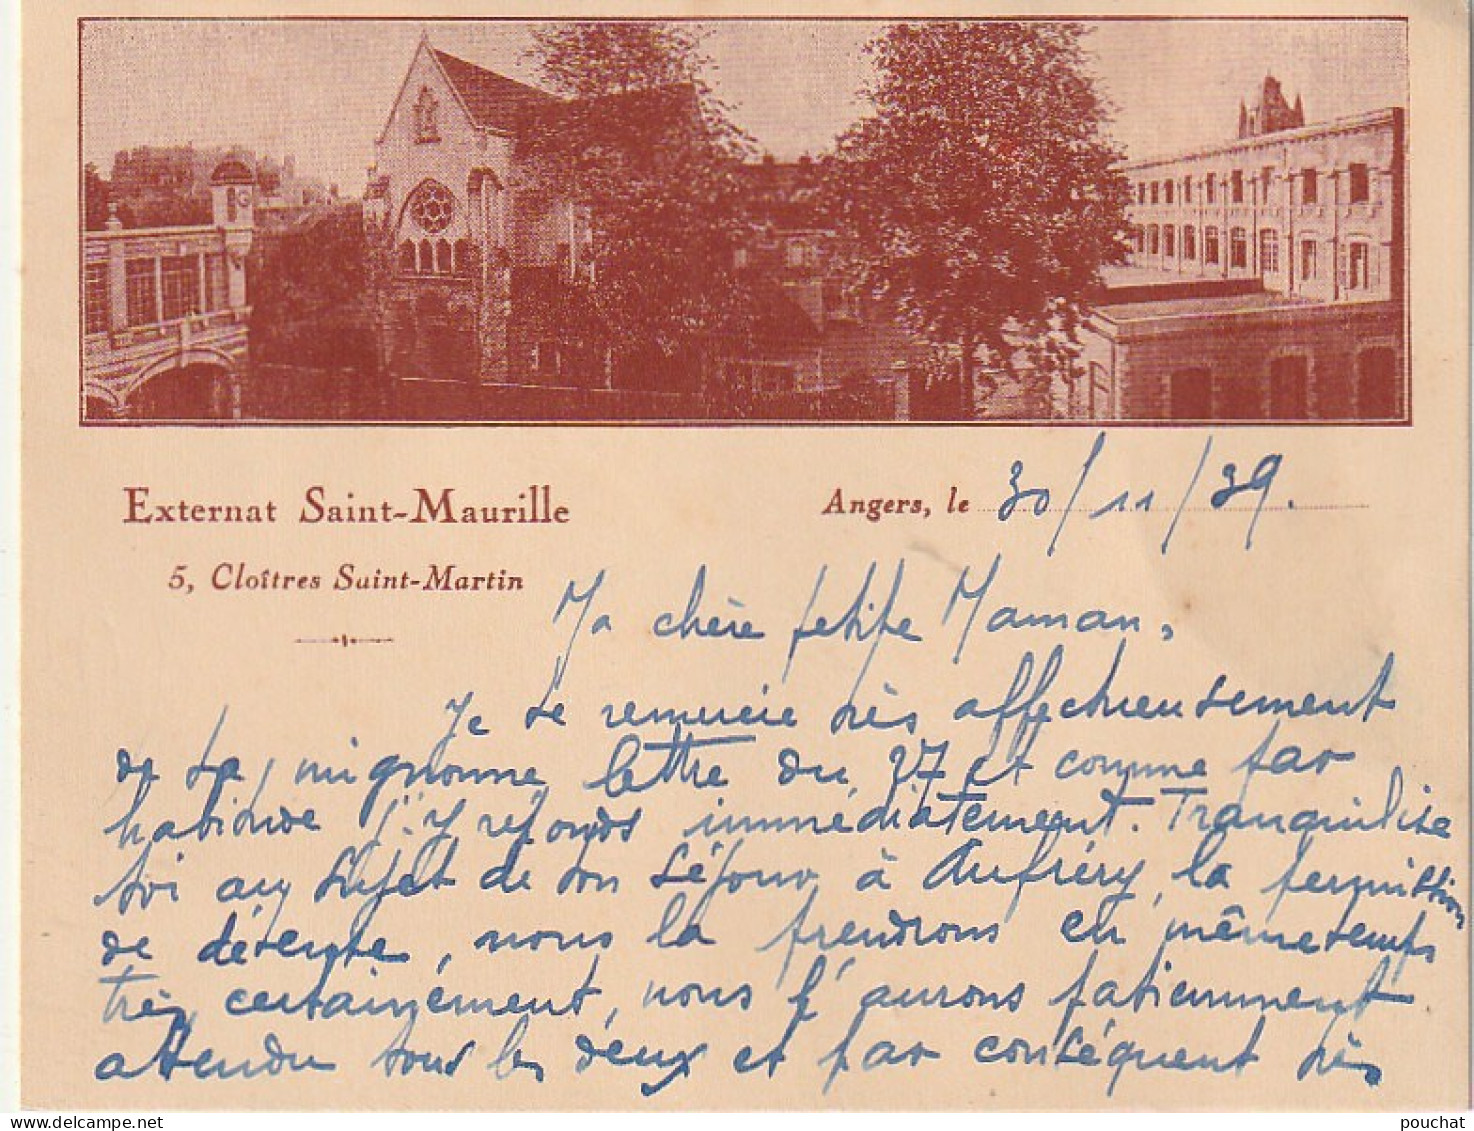 Externat Saint-Maurille
Angers, le 30/11/39.
5, Cloîtres Saint-Martin
Ma chère petite Maman,
Je te remercie très affectueusement
de ta mignonne lettre du 27 et comme par
habitude j'y réponds immédiatement. Tranquilise
toi au sujet de ton séjour à Aufréry, la permission
de détente, nous la prendrons en même temps
très certainement, nous l'aurons patiemment
attendu tous les deux et par conséquent très
pouchat